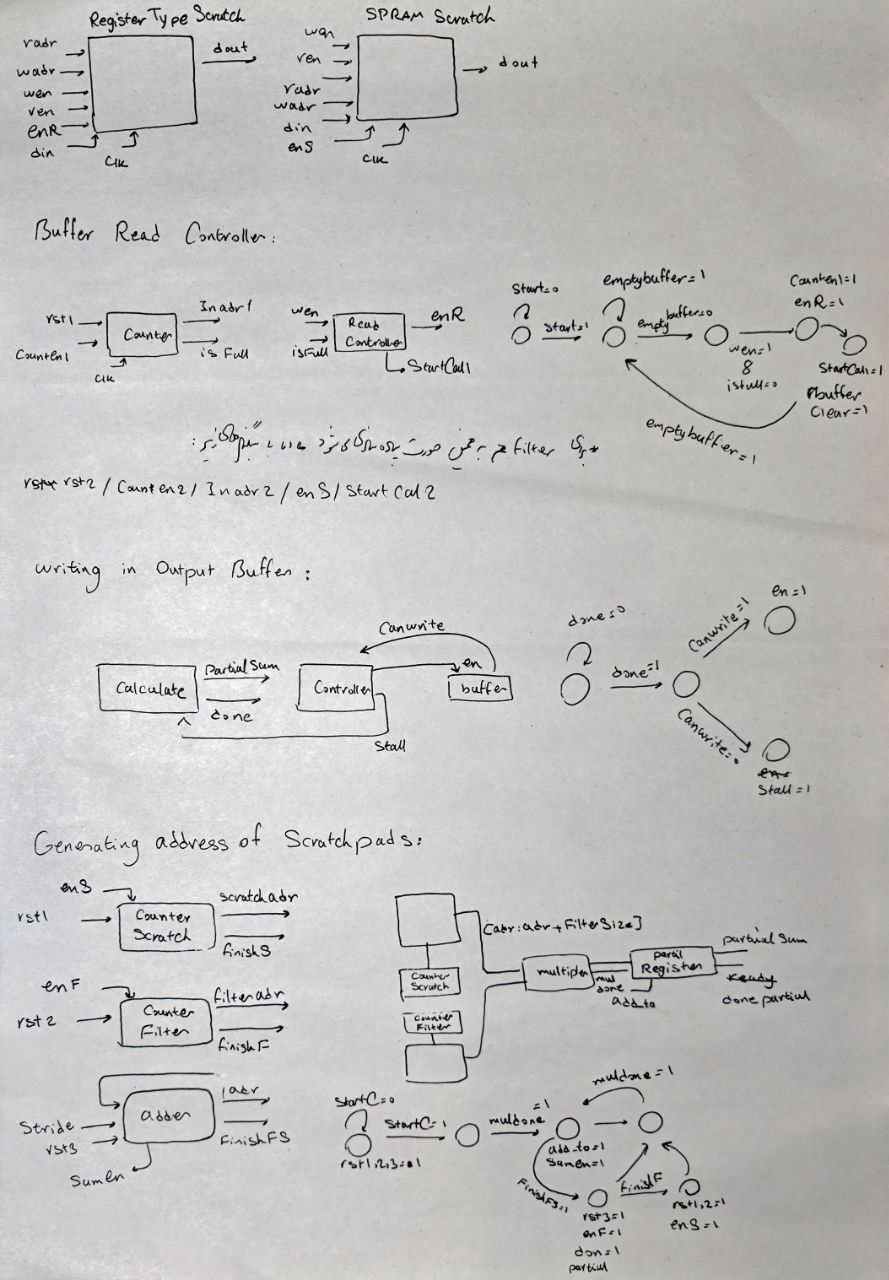 Register Type Scratch
radr
wadr
wen
ren
enR
din
clk
dout
SPRAM Scratch
wen
ren
radr
wadr
din
enS
clk
dout
Buffer Read Controller:
rst1
Counten1
Counter
clk
Inadr1
is Full
wen
isFull
Read Controller
enR
StartCal1
Start=0
Start=1
emptybuffer=1
emptybuffer=0
wen=1
&
isfull=0
Counten1=1
enR=1
StartCal1=1
buffer
Clear=1
emptybuffer=1
* برای filter هم به همین صورت پیاده سازی می شود با سیگنال های زیر:
rst2 / Counten2 / Inadr2 / enS / StartCal2
writing in Output Buffer:
Calculate
Partial Sum
done
Controller
Canwrite
en
buffer
Stall
done=0
done=1
Canwrite=1
en=1
Canwrite=0
Stall=1
Generating address of Scratchpads:
enS
rst1
Counter
Scratch
scratchadr
finishS
enF
rst2
Counter
Filter
filteradr
finishF
Stride
rst3
adder
adr
FinishFS
Sumen
Counter
Scratch
Counter
Filter
[adr:adr+FilterSize]
multiplier
mul
done
add_to
Register
partial Sum
Ready
done partial
StartC=0
rst1,2,3=1
StartC=1
muldone=1
add_to=1
Sumen=1
muldone=1
FinishFS=1
rst3=1
enF=1
don=1
partial
FinishF
rst1,2=1
enS=1